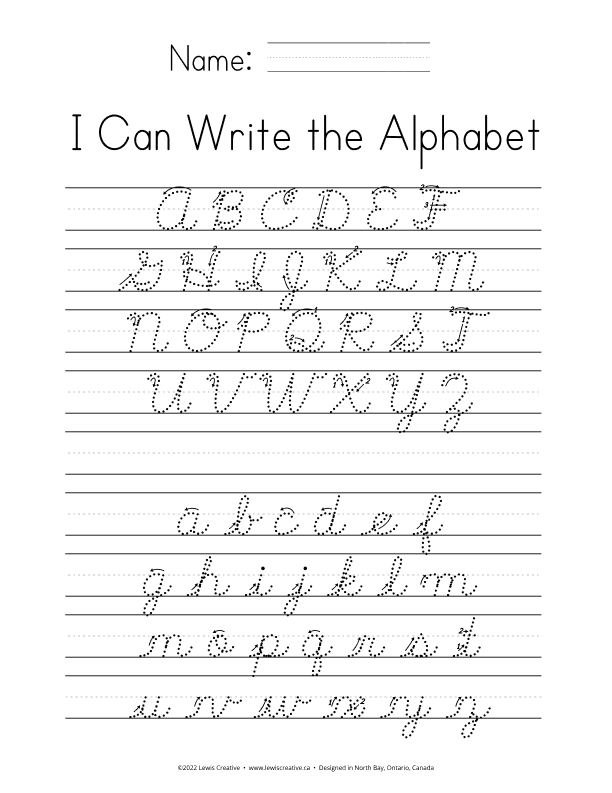 Name:
I Can Write the Alphabet
A B C D E F
G H I J K L M
N O P Q R S T
U V W X Y Z
a b c d e f
g h i j k l m
n o p q r s t
u v w x y z
©2022 Lewis Creative • www.lewiscreative.ca • Designed in North Bay, Ontario, Canada